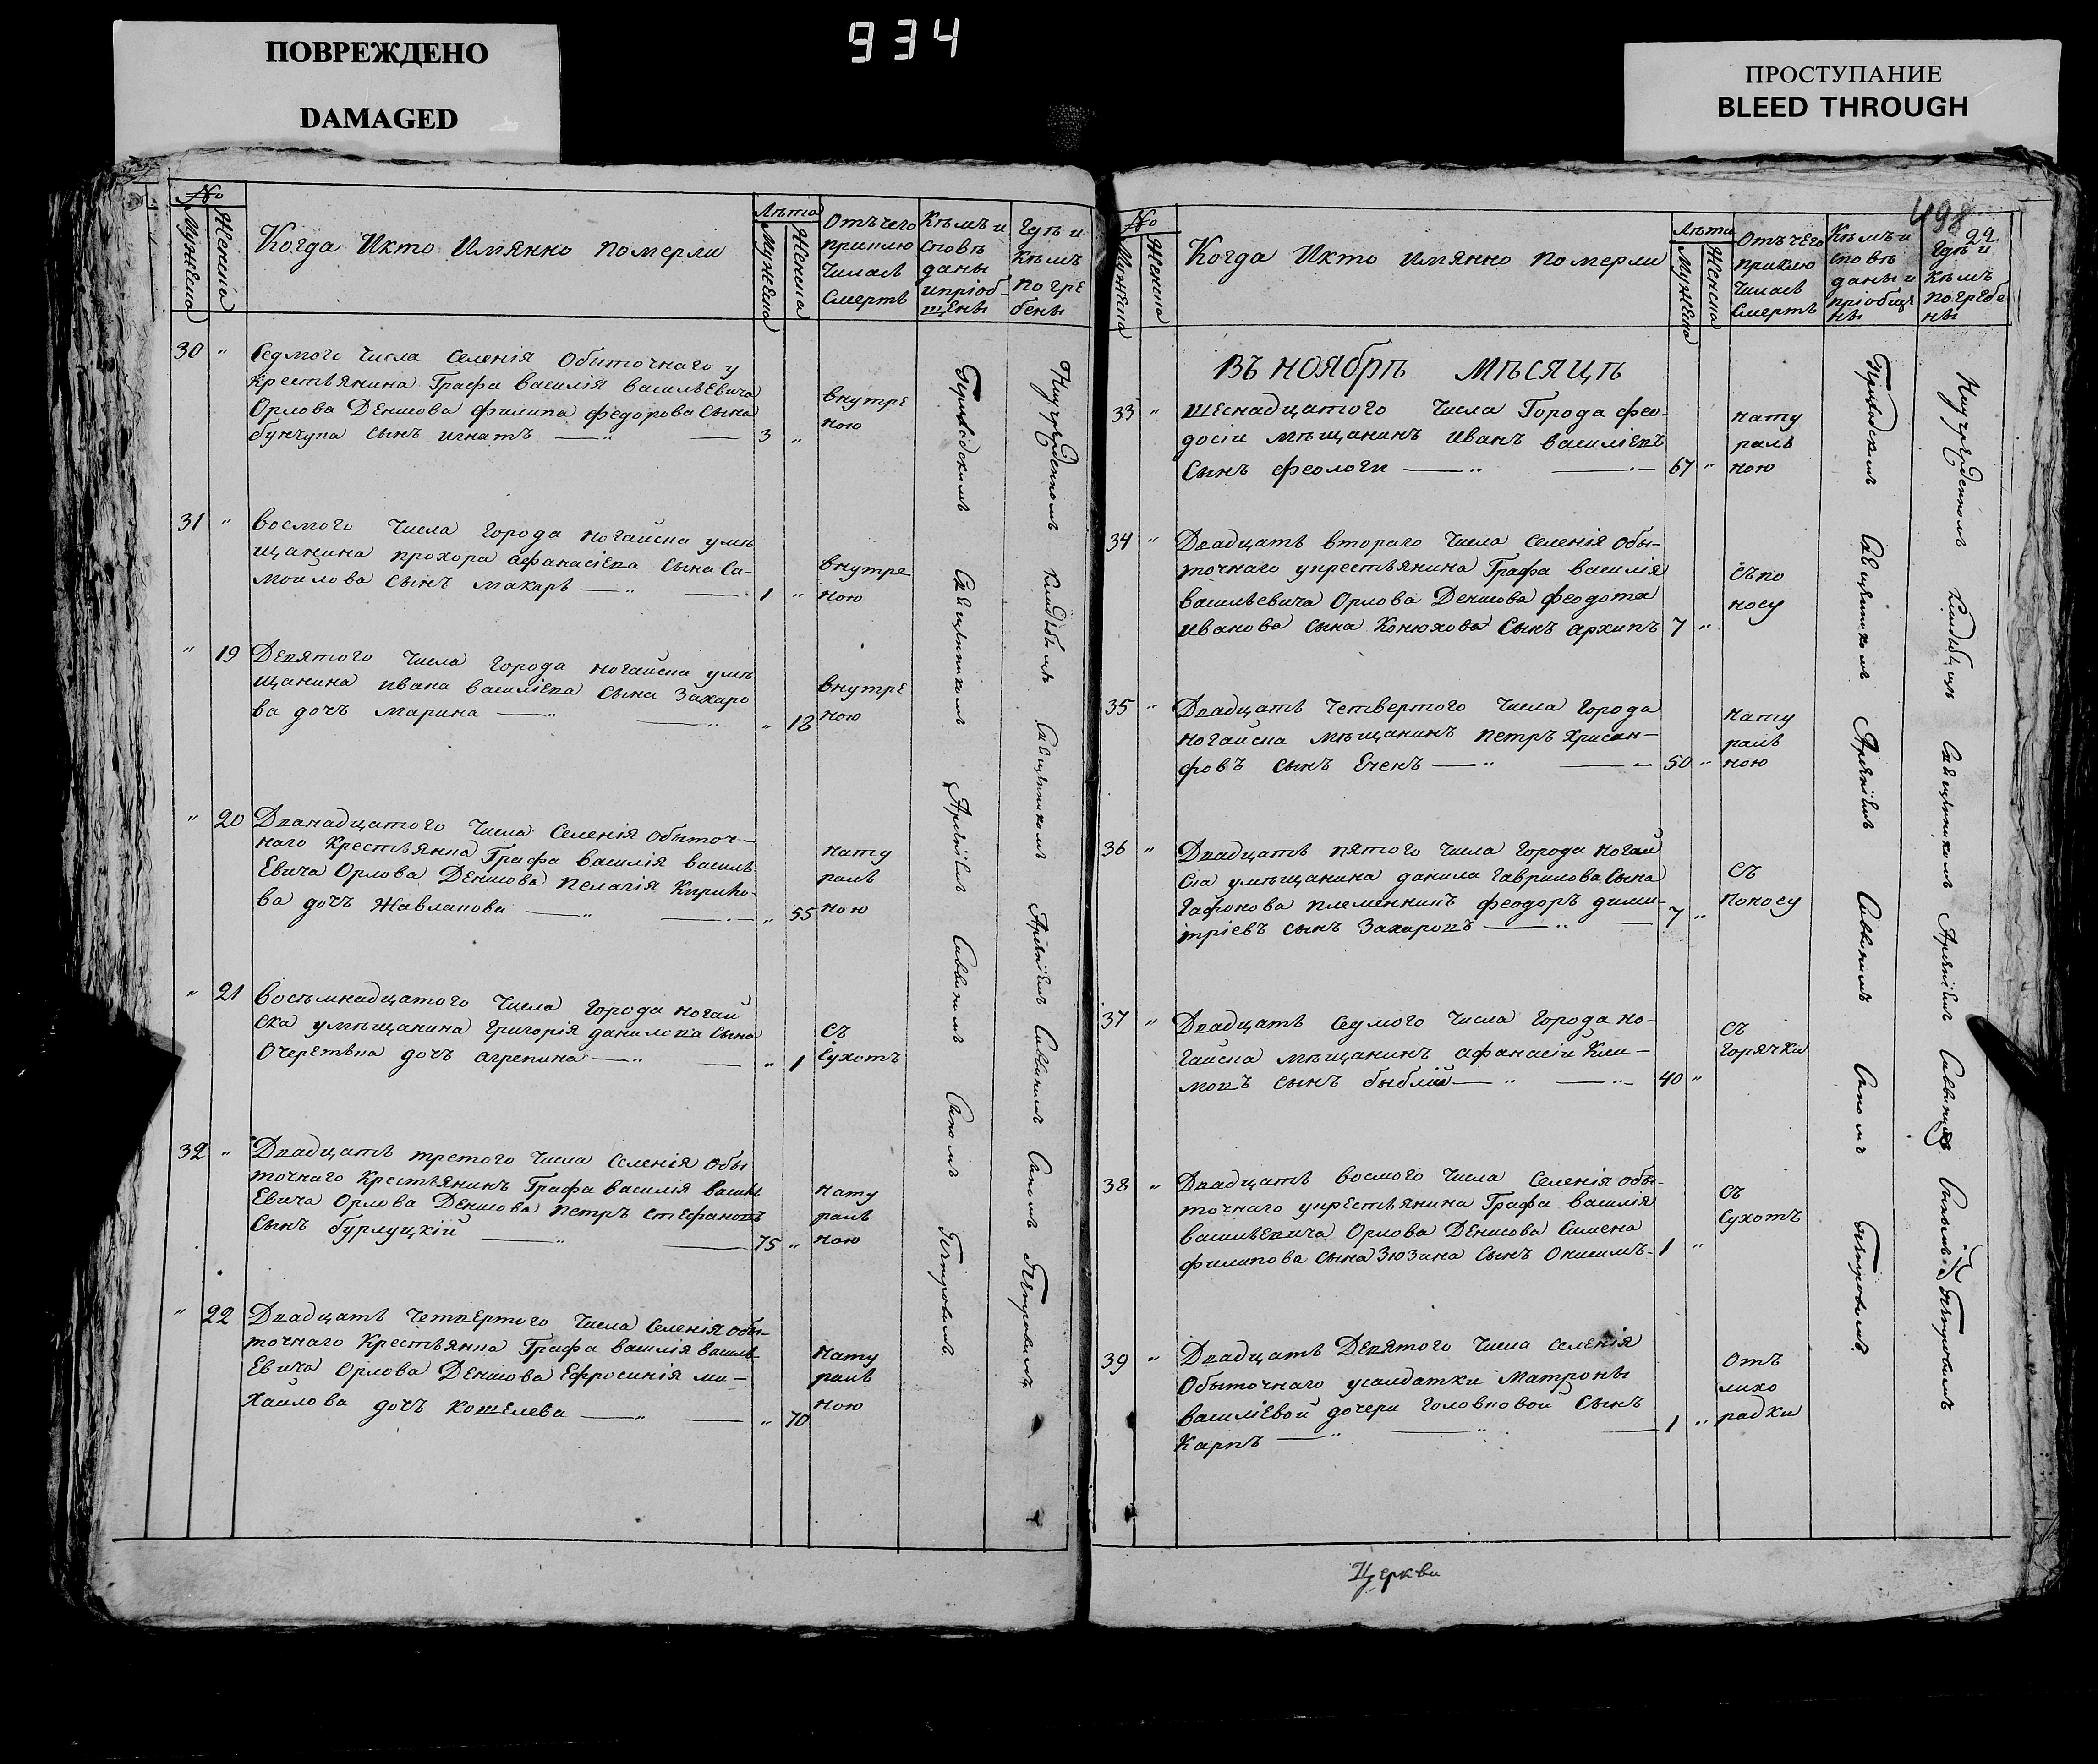 ПОВРЕЖДЕНО
DAMAGED
934
ПРОСТУПАНИЕ
BLEED THROUGH
№
Мужеска
Женска
Когда Икто Имянно померли
Лѣта
Мужеска
Женска
Отъчего
приклю
чилась
Смерть
Кѣмъ и
споВѣ
даны
ипріоб-
щены
Гдѣ и
кѣмъ
погре
бены
30 " Седмого Числа Селенія Обыточнаго у
крестьянина Графа василія васильЕвича
Орлова Денисова филипа федорова Сына
бунчупа сынъ игнатъ — " — 3 "
внутре
ною
31 " восмого Числа Города ногайска умѣ
щанина прохора афанасіева сына Са-
мойлова сынъ макаръ — " — 1 "
внутре
ною
" 19 Девятого Числа Города ногайска умѣ
щанина ивана василіева сына Захаро
ва дочъ марина — " — " 18
внутре
ною
" 20 Дванадцатого Числа Селенія обыточ-
наго Крестьянка Графа василія василь
Евича Орлова Денисова пелагія Кирило-
ва дочъ Жавланова — " — " 55
нату
раль
ною
" 21 восьмнадцатого Числа города ногай
ска умѣщанина григорія данилова сына
Очеретьна дочъ агрепина — " — " 1
съ
Сухотъ
32 " Двадцать третого Числа Селенія Обы
точнаго Крестьянинъ Графа василія василь
Евича Орлова Денисова петръ стефановъ
Сынъ бурлуцкій — " — 75 "
нату
раль
ною
" 22 Двадцать Четвертого Числа Селенія обы-
точнаго Крестьянка Графа василія василь
Евича Орлова Денисова Ефросинія ми-
хайлова дочъ кошелева — " — " 70
нату
раль
ною
Приходскимъ Священникомъ Арсеніемъ Саввинымъ Сыномъ Петровымъ
Кладбищѣ Священникомъ Арсеніемъ Саввинымъ Сыномъ Петровымъ
498
22
№
Мужеска
Женска
Когда Икто имянно померли
Лѣта
Мужеска
Женска
Отъчего
приклю
чилась
Смерть
Кѣмъ и
споВѣ
даны и
пріобще
ны
Гдѣ и
кѣмъ
погребе
ны
Въ ноябрѣ мѣсяцѣ
33 " шеснадцатого Числа Города фео-
досіи мѣщанинъ иванъ василіевъ
Сынъ феологи — " — 67 "
нату
раль
ною
34 " Двадцать втораго Числа Селенія Обы-
точнаго укрестьянина Графа василія
васильевича Орлова Денисова феодота
иванова сына Конюхова Сынъ архипъ 7 "
съпо
носу
35 " Двадцать Четвертого Числа Города
ногайска мѣщанинъ петръ Хрисан-
фовъ сынъ Еченъ — " — 50 "
нату
раль
ною
36 " Двадцать пятого Числа города ногай
ска умѣщанина данила гаврилова сына
Гафонова племенникъ феодоръ дими-
тріевъ сынъ Захаровъ — " — 7 "
съ
поносу
37 " Двадцать Седмого Числа Города но-
гайска мѣщанинъ афанасій Кли-
мовъ сынъ быблій — " — 40 "
съ
горячки
38 " Двадцать восмого Числа Селенія обы-
точнаго укрестьянина Графа василія
васильевича Орлова Денисова Симена
филипова сына Зюзина сынъ Онисимъ - 1 "
съ
Сухотъ
39 " Двадцать Девятого Числа Селенія
Обыточнаго усалдатки Матроны
василіевой дочери головковой Сынъ
Карпъ — " — 1 "
отъ
лихо
радки
Приходскимъ Священникомъ Арсеніемъ Саввинымъ Сыномъ Петровымъ
Кладбищѣ Священникомъ Арсеніемъ Саввинымъ Сыномъ Петровымъ
Церкви